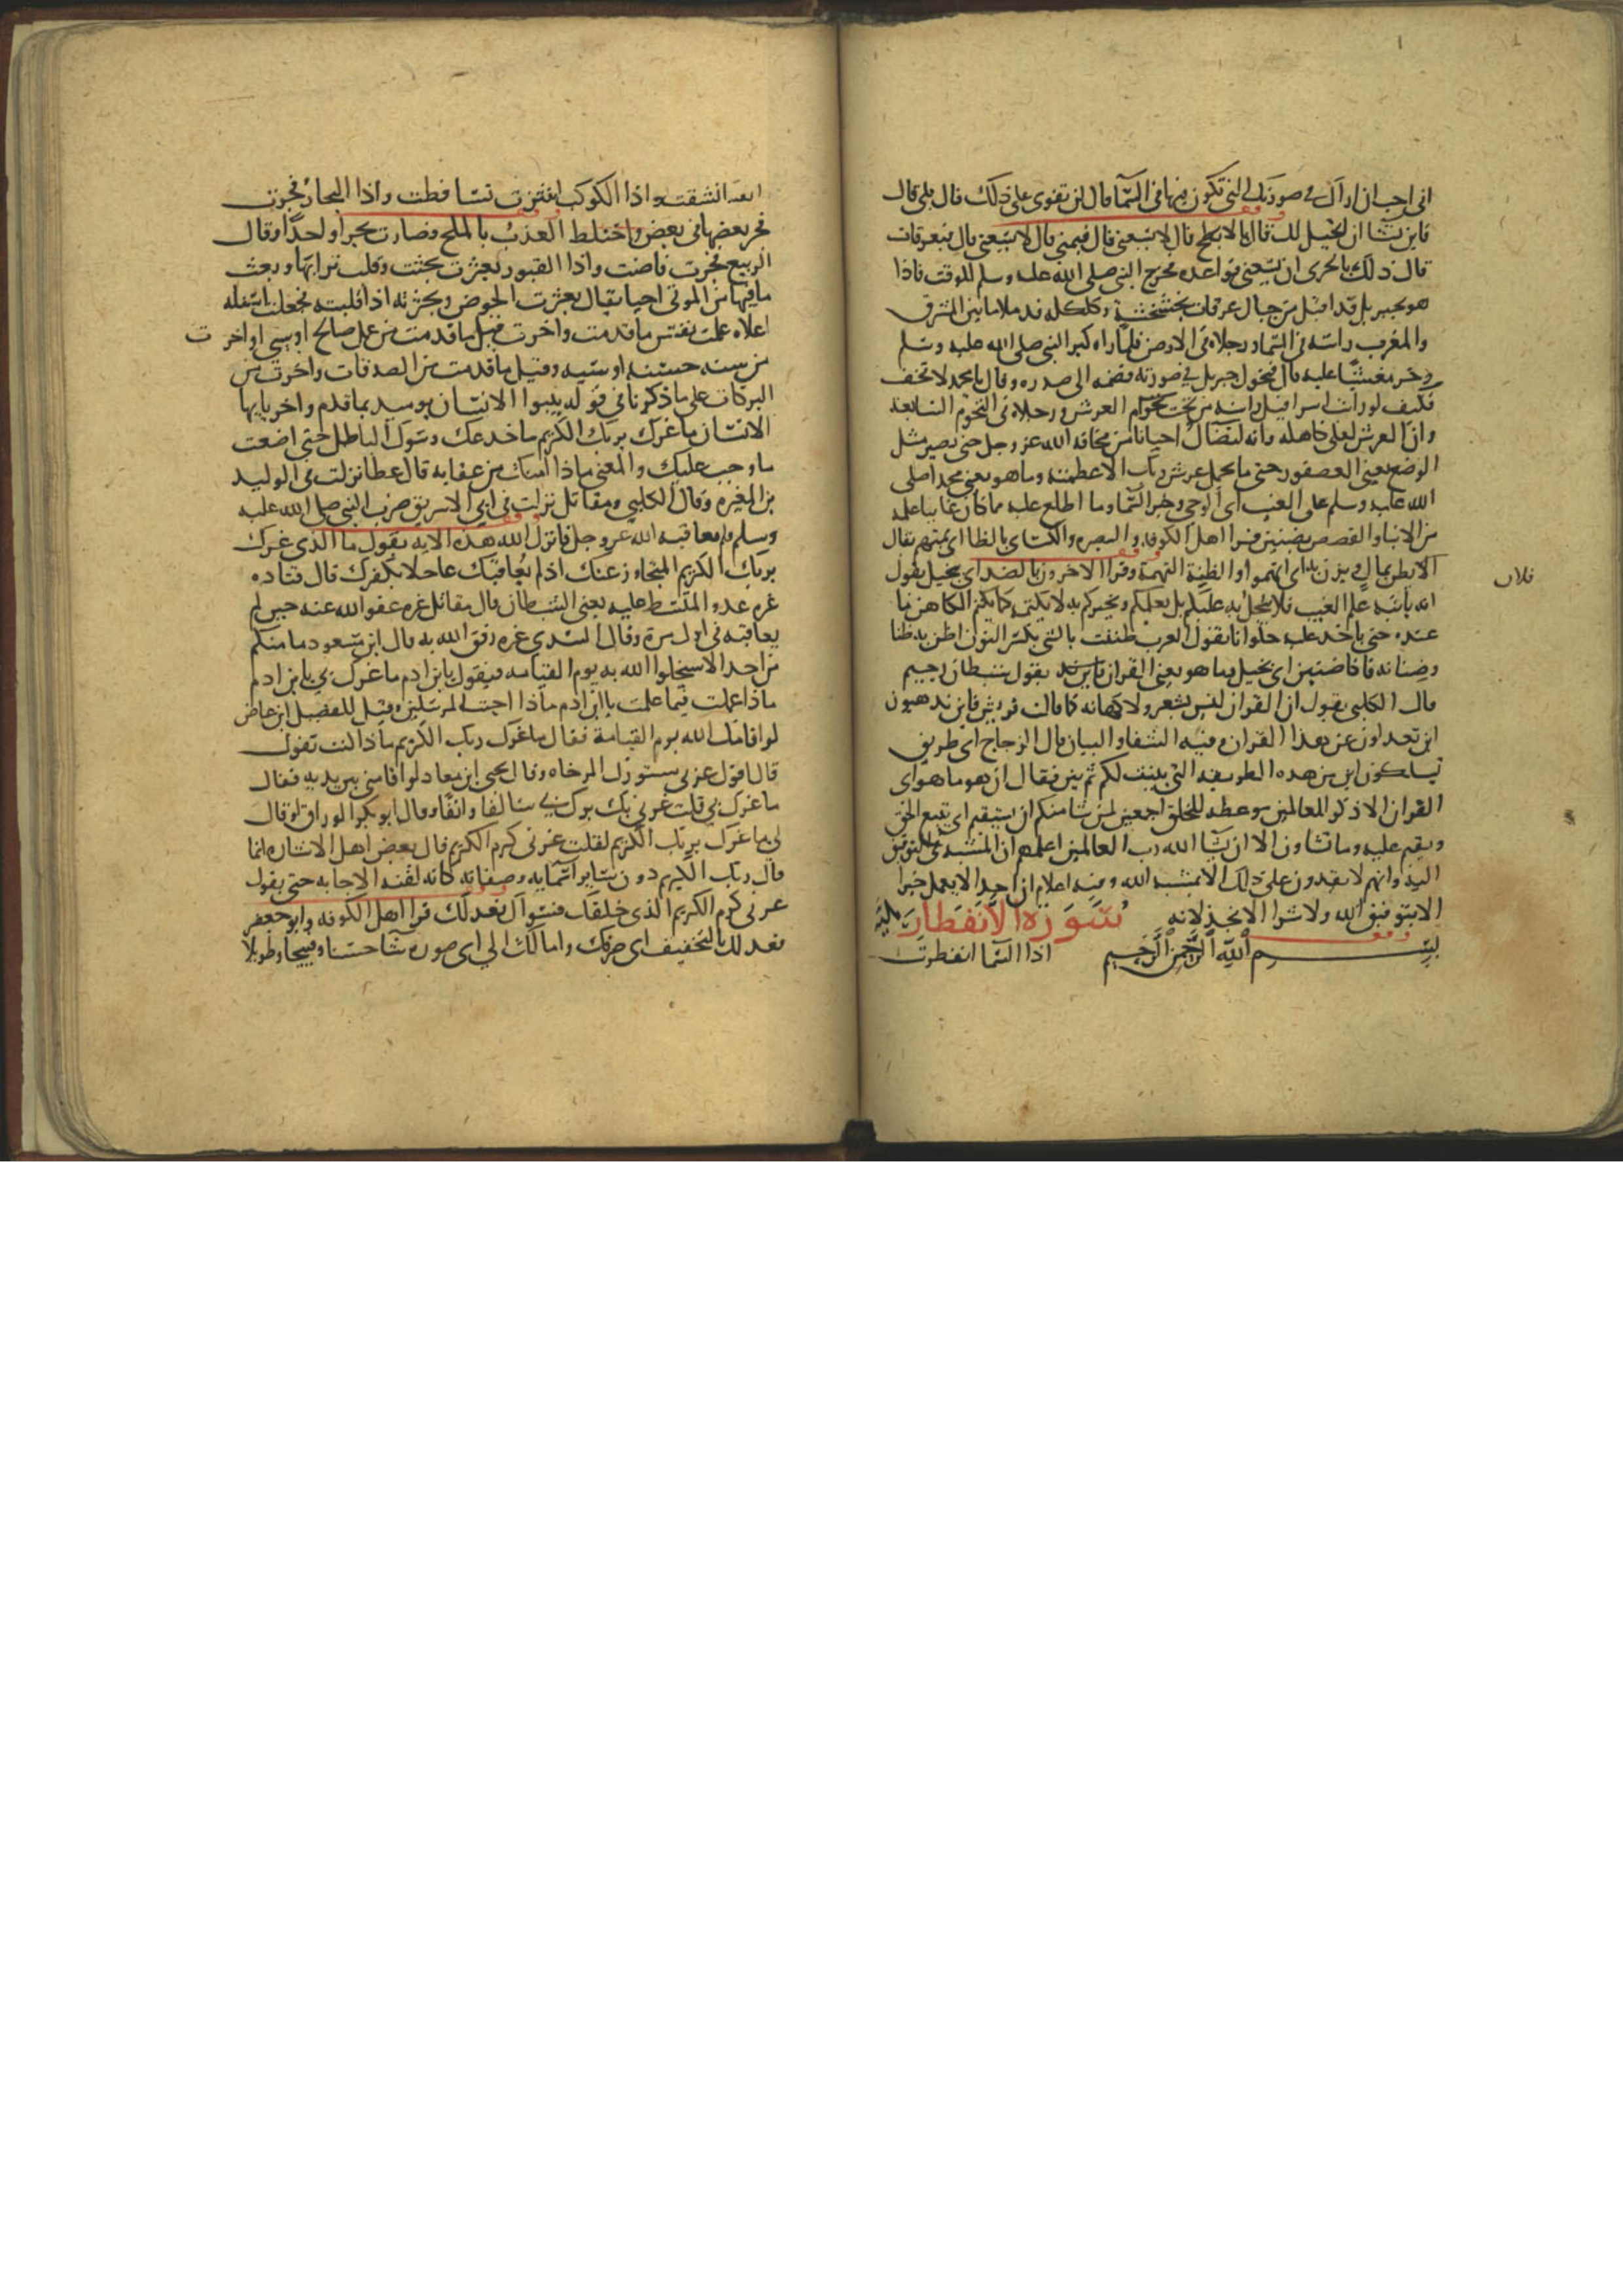 اني احب ان اراك في صورتك التي تكون فيها في السما قال لن تقوى على ذلك قال بلى قال
فاين تشا ان اتخيل لك قال بالابطح قال لا يسعني قال فبمنى قال لا يسعني قال فبعرفات
قال ذلك بالحرى ان يسعني فواعده فخرج النبي صلى الله عليه وسلم للوقت فاذا
هو بجبريل قد اقبل من جبال عرفات بخشخشة وكلكلة قد ملا ما بين المشرق
والمغرب راسه في السما ورجلاه في الارض فلما راه كبر النبي صلى الله عليه وسلم
وخر مغشيا عليه قال فتحول جبريل في صورته فضمه الى صدره وقال يا محمد لا تخف
فكيف لو رات اسرافيل راسه من تحت العرش ورجلاه في التخوم السابعة
وان العرش لعلى كاهله وانه ليتضال احيانا من مخافة الله عز وجل حتى يصير مثل
الوضع يعني العصفور حتى ما يحمل عرش ربك الا عظمته وما هو يعني محمدا صلى
الله عليه وسلم على الغيب اي الوحي وخبر السما وما اطلع عليه مما كان غايبا علمه
من الانبا والقصص بضنين قرا اهل الكوفة والبصره والكساي بالظا اي بمتهم يقال
فلان
اي يتهم والظنة التهمة وقرا الاخرون بالضد اي بخيل يقول
انه ياتيه علم الغيب فلا يبخل به عليكم بل يعلمكم ويخبركم به لا يكتمه كما يكتم الكاهن ما
عنده حتى ياخذ عليه حلوانا تقول العرب ظننت بالشي بكسر النون اظن به ظنا
وضنانه فانا ضنين اي بخيل وما هو يعني القران بقول شيطان رجيم
قال الكلبي يقول ان القران ليس بشعر ولا كهانه كما قالت قريش فاين تذهبون
اين تعدلون عن هذا القران وفيه الشفا والبيان قال الزجاج اي طريق
تسلكون ابين من هذه الطريقه التي بينت لكم ثم بين فقال ان هو ما هو اي
القران الا ذكر للعالمين موعظه للخلق اجمعين لمن شا منكم ان يستقيم اي يتبع الحق
ويقيم عليه وما تشاون الا ان يشا الله رب العالمين اعلمهم ان المشيه في التوفيق
اليه وانهم لا يقدرون على ذلك الا بمشيه الله وفيه اعلام ان احدا لا يعمل خيرا
الا بتوفيق الله ولا شرا الا بخذلانه سورة الانفطار مكية
بسم الله الرحمن الرحيم اذا السما انفطرت
انشقت واذا الكوكب انتثرت تساقطت واذا البحار فجرت
فجر بعضها في بعض واختلط العذب بالملح فصارت بحرا واحدا وقال
الربيع فجرت فاضت واذا القبور بعثرت بحثت وقلبت ترابها وبعث
ما فيها من الموتى احيا يقال بعثرت الحوض وبحثرته اذا قلبته فجعلت اسفله
اعلاه علمت نفس ما قدمت واخرت قيل ما قدمت من عمل صالح او سيي او اخرت
من سنه حسنه او سيه وقيل ما قدمت من الصدقات واخرت من
البركات على ما ذكرنا في قوله ينبوا الانسان يوميذ بما قدم واخر يا ايها
الانسان ما غرك بربك الكريم ما خدعك وسول الباطل حتى اضعت
ما وجب عليك والمعنى ماذا امنك من عقابه قال عطا نزلت في الوليد
بن المغيره وقال الكلبي ومقاتل نزلت في ابي الاسد بن ضرب النبي صلى الله عليه
وسلم ولم يعاقبه الله عز وجل فانزل الله هذه الايه يقول ما الذي غرك
بربك الكريم المتجاوز عنك اذ لم يعاقبك عاجلا بكفرك قال قتاده
غره عدوه المتسلط عليه يعني الشيطان قال مقاتل غره عفو الله عنه حين لم
يعاقبه في اول مرة وقال السدي غره رفق الله به قال ابن مسعود ما منكم
من احد الا سيخلوا الله به يوم القيامه فيقول يا بن ادم ما غرك بي يا بن ادم
ماذا عملت فيما علمت يا ابن ادم ماذا اجبت المرسلين وقيل للفضيل ابن عياض
لو اقامك الله يوم القيامة فقال ما غرك ربك الكريم ماذا كنت تقول
قال اقول غرني ستورك المرخاه وقال يحيى ابن معاذ لو اقامني بين يديه فقال
ما غرك بي قلت غرني بك برك بي سالفا وانفا وقال ابو بكر الوراق لو قال
لي ما غرك بربك الكريم لقلت غرني كرم الكريم قال بعض اهل الاشاره انما
قال ربك الكريم دون ساير اسمايه وصفاته كانه لقنه الاجابه حتى يقول
غرني كرم الكريم الذي خلقك فسواك فعدلك قرا اهل الكوفه وابو جعفر
فعدلك بالتخفيف اي صرفك وامالك الى اي صوره شا حسنا وقبيحا وطويلا